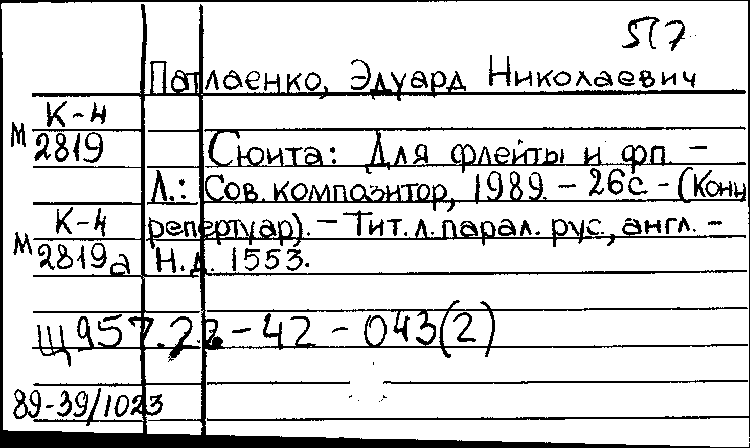 517
Патлаенко, Эдуард Николаевич
К-4
М 2819
Сюита: Для флейты и фп. –
Л.: Сов. композитор, 1989. – 26с – (Конц
К-4
репертуар). – Тит. л. парал. рус., англ. –
М 2819а
Н.д. 1553.
Щ957.22-42-043(2)
89-39/1023